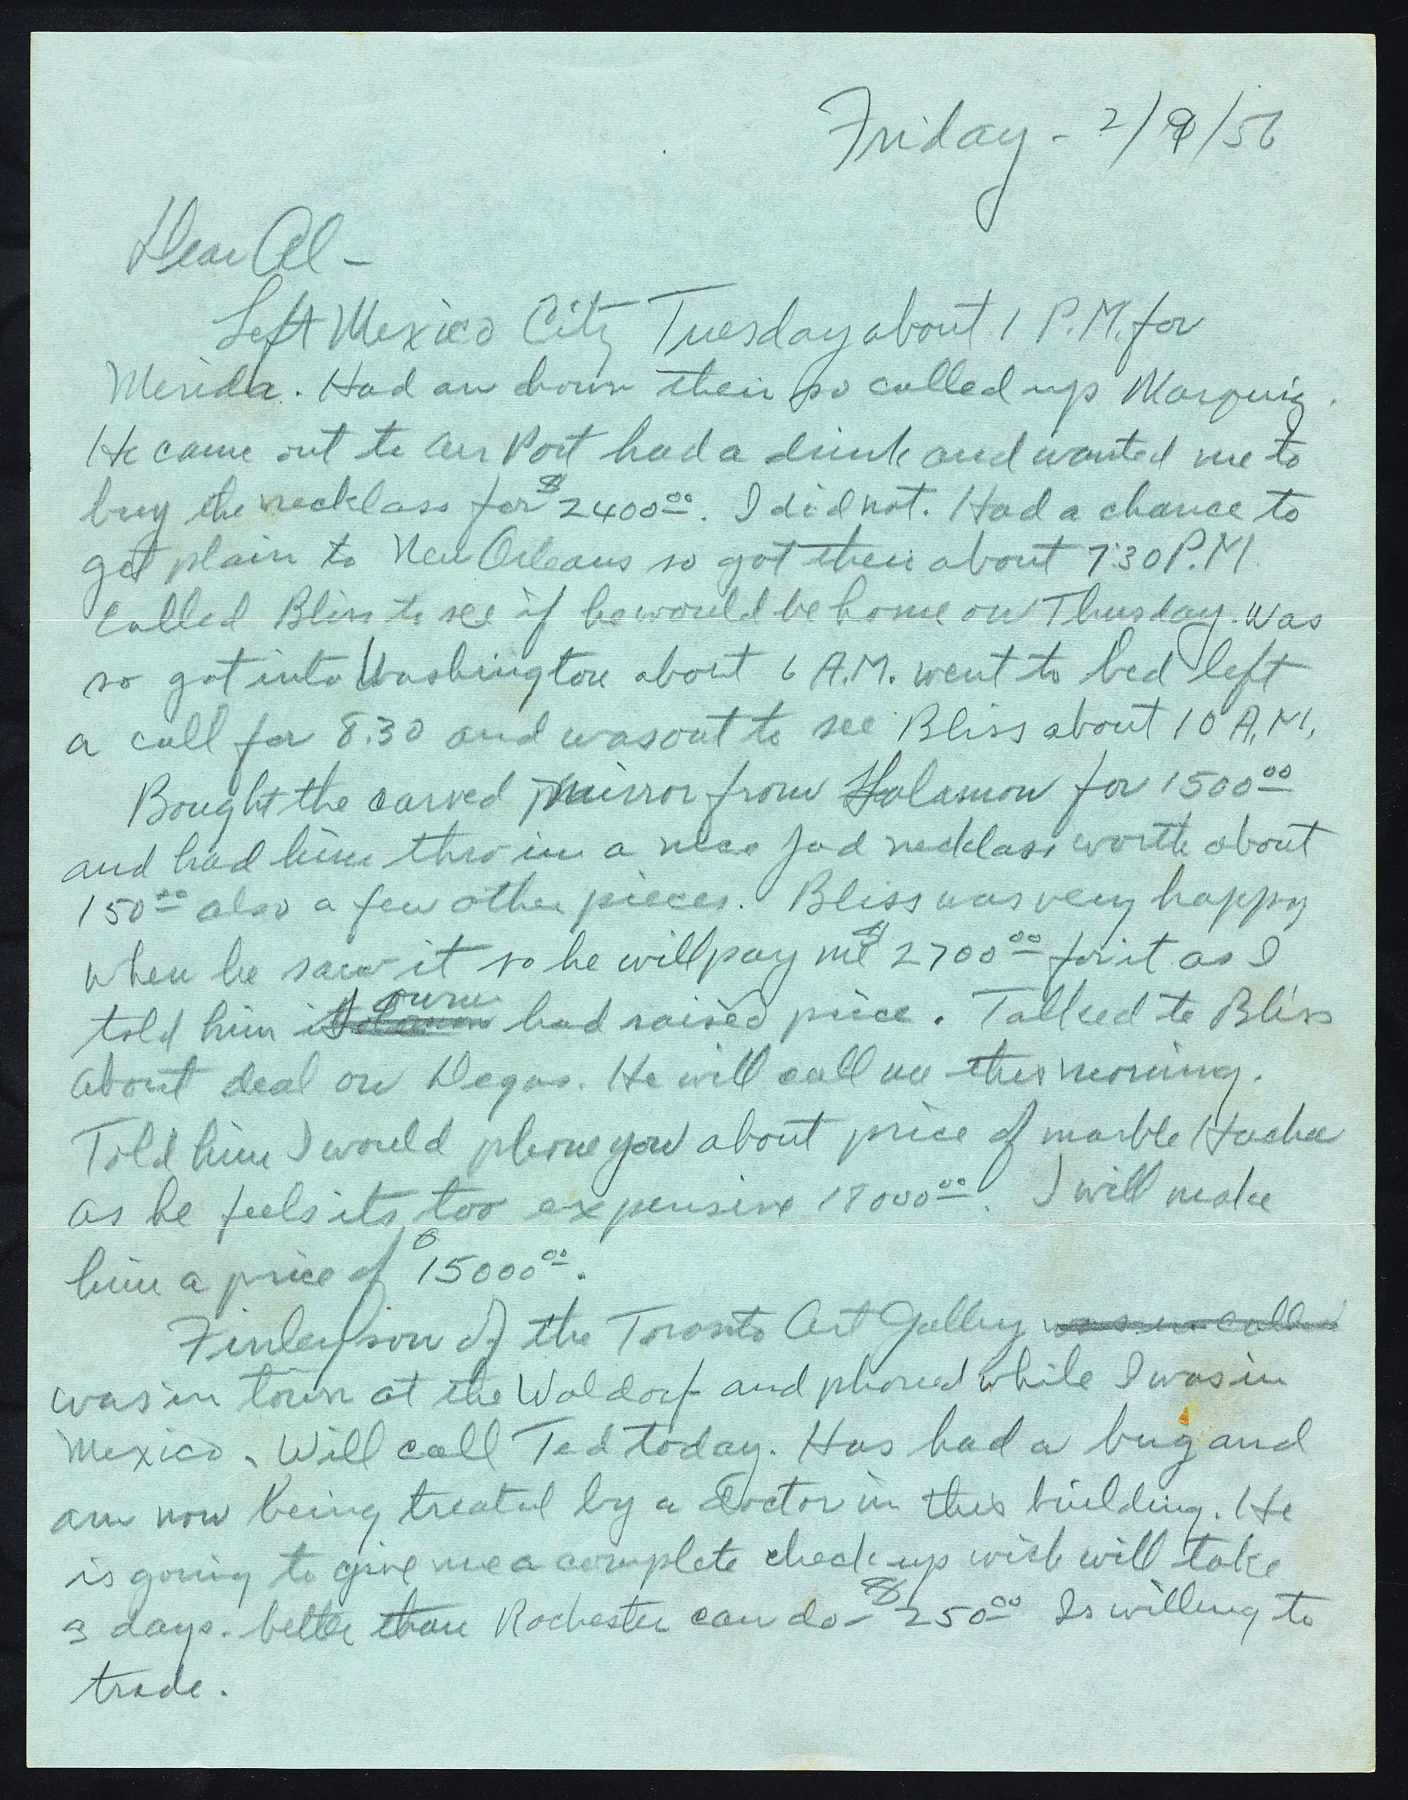 Friday - 2/9/56
Dear Al -
Left Mexico City Tuesday about 1 P.M. for
Merida. Had an hour their so called up Marquig.
He came out to air Port had a drink and wanted me to
buy the necklass for $2400.00. I did not. Had a chance to
get plain to New Orleans so got their about 7:30 P.M.
Called Bliss to see if he would be home on Thursday. Was
so got into Washington about 6 A.M. went to bed left
a call for 8.30 and was out to see Bliss about 10 A.M.
Bought the carved mirror from Holamon for 1500.00
and had him thro in a nice Jad necklass worth about
150.00 also a few other pieces. Bliss was very happy
when he saw it so he will pay me $2700.00 for it as I
told him owner had raised price. Talked to Bliss
about deal on Degas. He will call me this morning.
Told him I would phone you about price of marble Hacha
as he feels its too expensive 18000.00. I will make
him a price of $15000.00.
Finleyson of the Toronto Art Gallery was in called
was in town at the Waldorf and phoned while I was in
Mexico. Will call Ted today. Has had a bug and
am now being treated by a Doctor in this building. He
is going to give me a complete check up wich will take
3 days. better than Rochester can do - $250.00 Is willing to
trade.